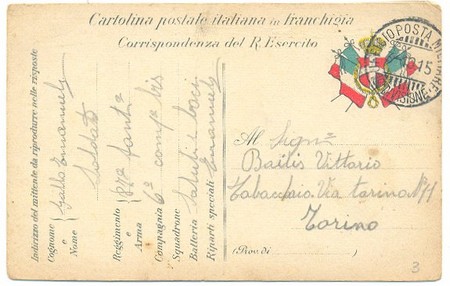 Cartolina postale italiana in franchigia
Corrispondenza del R. Esercito
POSTA MILITARE
15
DIVISIONE
Al Sign^r
Bailis Vittorio
Tabaccaio Via Torino N° 11
Torino
(Prov. di )
3
Indirizzo del mittente da riprodurre nelle risposte
Cognome e Nome Gallo Emanuele
Soldato
Reggimento o Arma Fant^a
Compagnia 6^a comp^a bis
Squadrone
Batteria Saluti e baci
Riparti speciali Emanuele